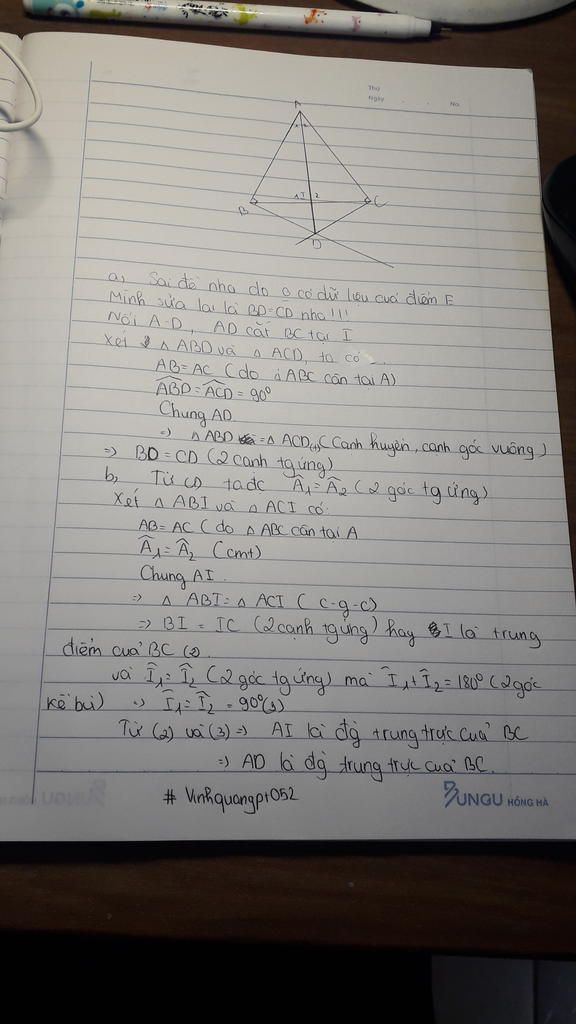 Thứ
Ngày . . No.
A
1 I 2
B C
D
a, Sai đề nha do o có dữ liệu của điểm E
Mình sửa lại là BD=CD nha!!!
Nối A-D, AD cắt BC tại I
Xét △ ABD và △ ACD, ta có
AB=AC (do △ABC cân tại A)
ABD=ACD=90°
Chung AD
=> △ ABD = △ ACD(1) (cạnh huyền, cạnh góc vuông)
=> BD=CD (2 cạnh tg ứng)
b, Từ (1) ta đc Â1=Â2 (2 góc tg ứng)
Xét △ ABI và △ ACI có:
AB=AC (do △ ABC cân tại A
Â1=Â2 (cmt)
Chung AI.
=> △ ABI=△ ACI (c-g-c)
=> BI=IC (2 cạnh tg ứng) hay I là trung
điểm của BC (2)
và Î1=Î2 (2 góc tg ứng) mà Î1+Î2=180° (2 góc
kề bù) => Î1=Î2=90°(3)
Từ (2) và (3) => AI là đg trung trực của BC
=> AD là đg trung trực của BC.
# Vinhquangpt052
BUNGU HỒNG HÀ